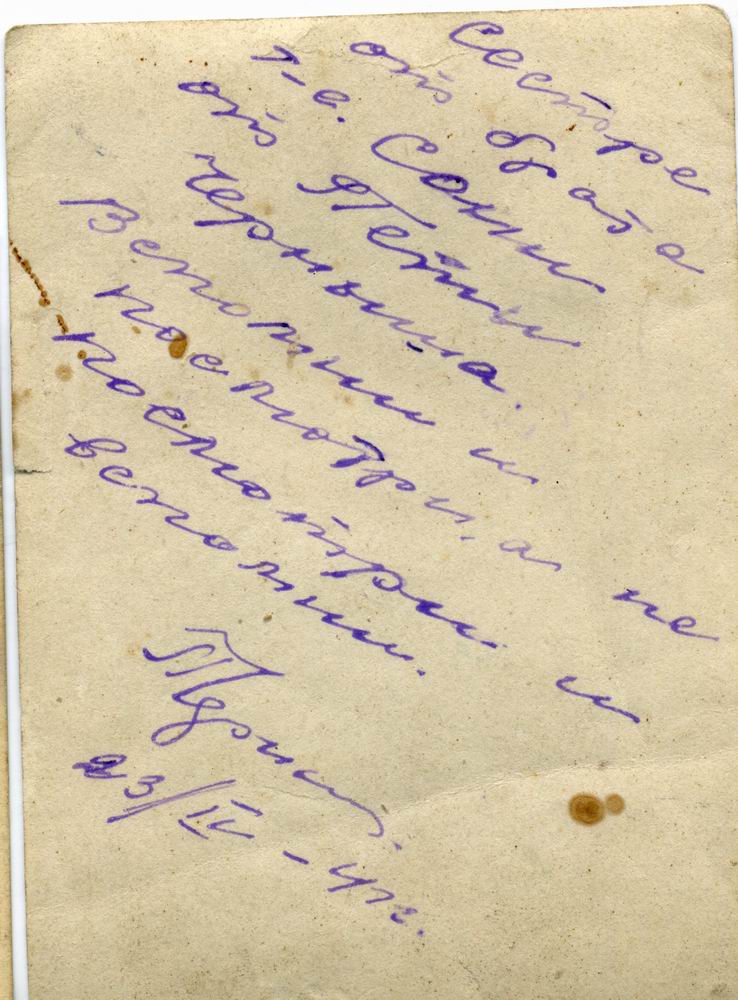 Сестре
от брата
т-е. Сони
от Пети
Черныша.
Вспомни и
посмотри, а не
посмотри и
вспомни.
23/IV - 41г.